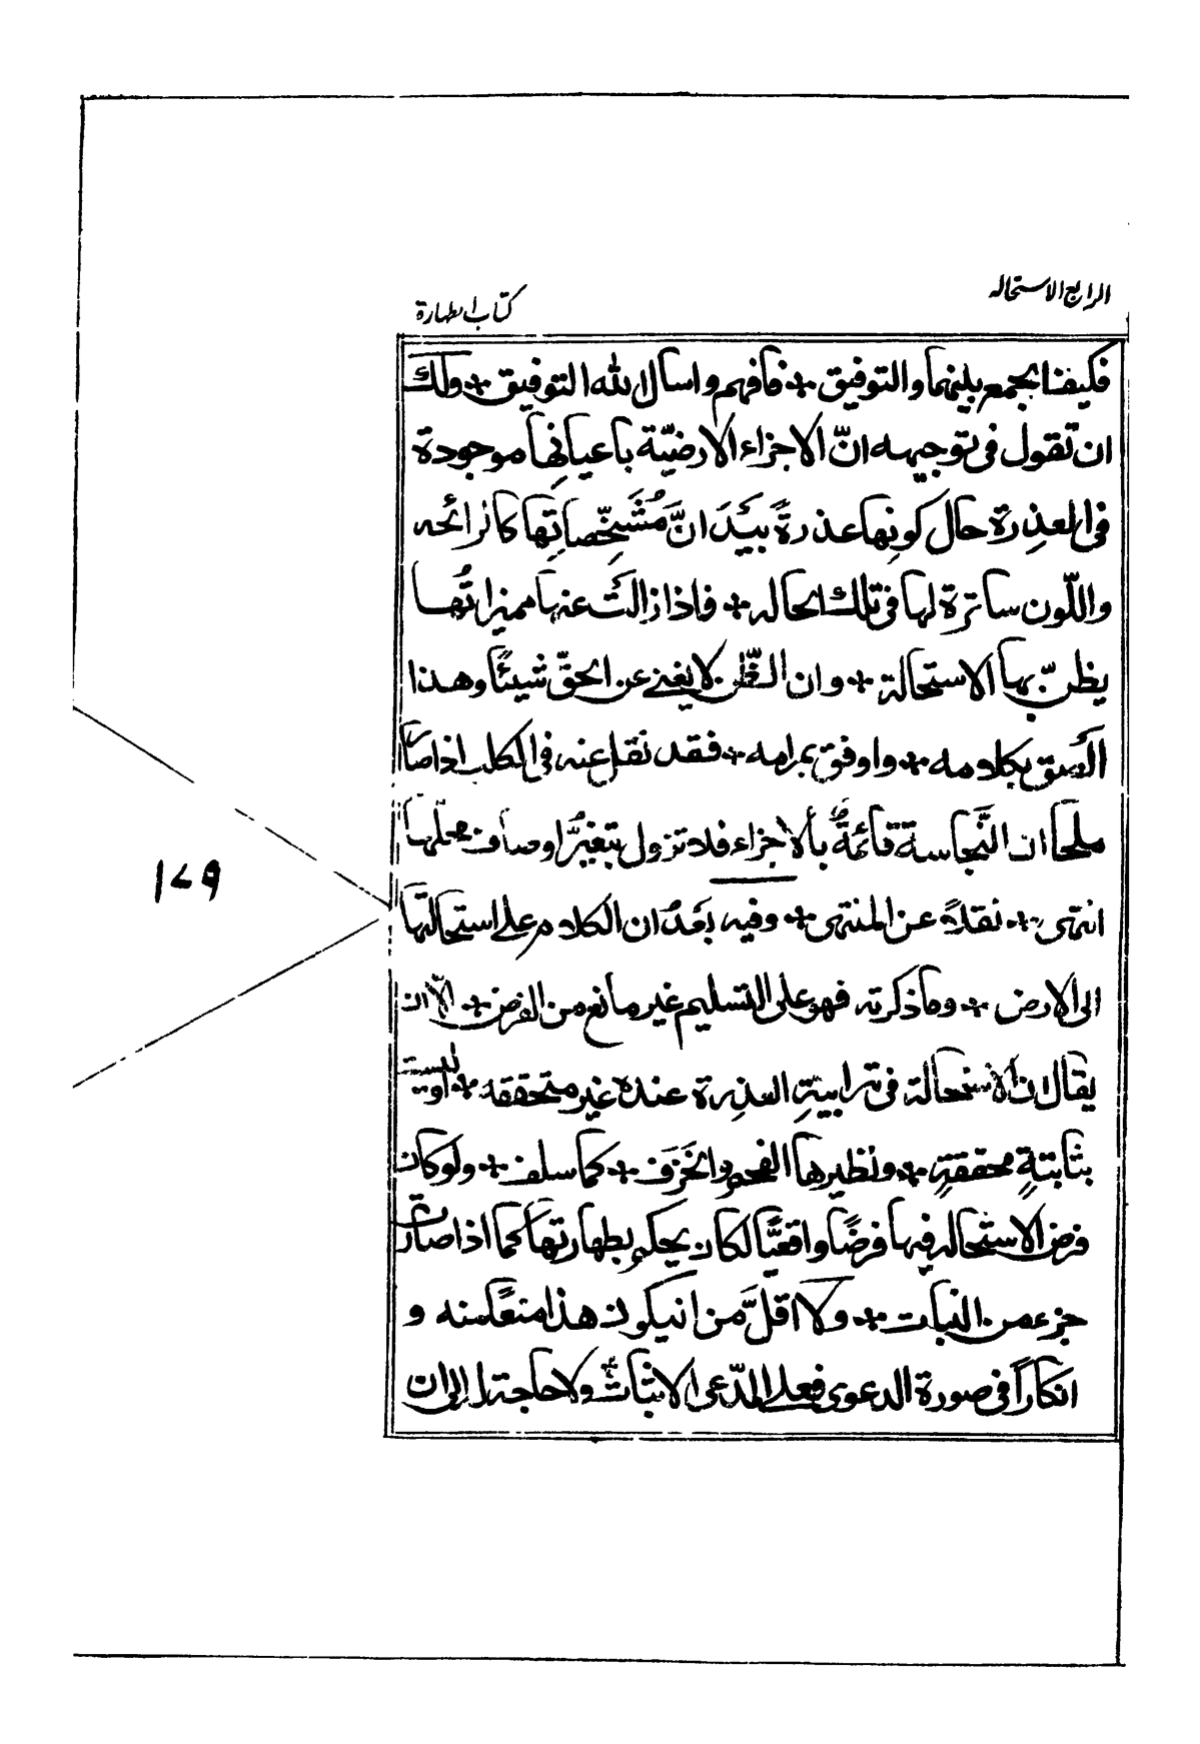 الرابع الاستحاله
كتاب الطهارة
فكيفنا بجمع بينهما والتوفيق ٭ فافهم واسال الله التوفيق ٭ ولك
ان تقول فى توجيهه انّ الاجزاء الارضيّة باعيانِها موجودة
فى العذِرة حال كونِها عذرةً بيَدَ انَّ مُشَخِّصاتِها كالرائحه
واللّون ساترة لها فى تلك الحاله ٭ فاذا زالَت عنها مميزاتُها
يظنّ بها الاستحالة ٭ وان الظّن لا يغنے عن الحقّ شيئًا وهذا
الصق بكلامه ٭ واوفق بمرامه ٭ فقد نقل عنه فى الكلب اذا صار
ملحا ان النَّجاسة قائمةٌ بالاجزاء فلا تزول بتغيُّر اوصاف محلها
انتهى ٭ نقلاً عن المنتهى ٭ وفيه بَعْدُ ان الكلام على استحالتها
الى الارض ٭ وما ذكرته فهو على التسليم غير مانع من الفرض ٭ الّا ان
يقال ان الاستحالة فى ترابيةِ العذِرة عنده غير متحققه ٭ اوليست
بثابتةٍ محققةٍ ٭ ونظيرها الفحم والخَزَف ٭ كما سلف ٭ ولو كان
فرض الاستحاله فيها فرضًا واقعيًّا لكان يحكم بطهارتها كما اذا صارت
جزء من النبات ٭ ولا اقلَّ من انيكون هذا منعًا منه و
انكاراً فى صورة الدعوى فعلى المدّعى الاثبات ولا حاجة الى ان
١٧٩